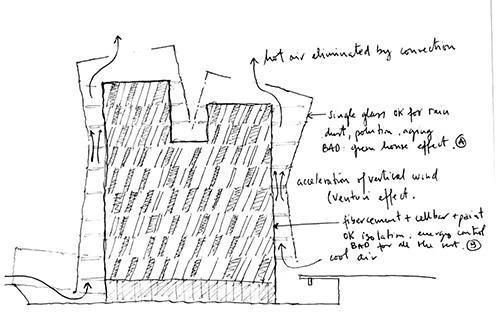 hot air eliminated by convection
single glass OK for rain
dust, polution, aging
BAD: green house effect. (A)
acceleration of vertical wind
(venturi effect.
fibercement + cellbar + paint
OK isolation. energy control
BAD for all the rest. (B)
cool air